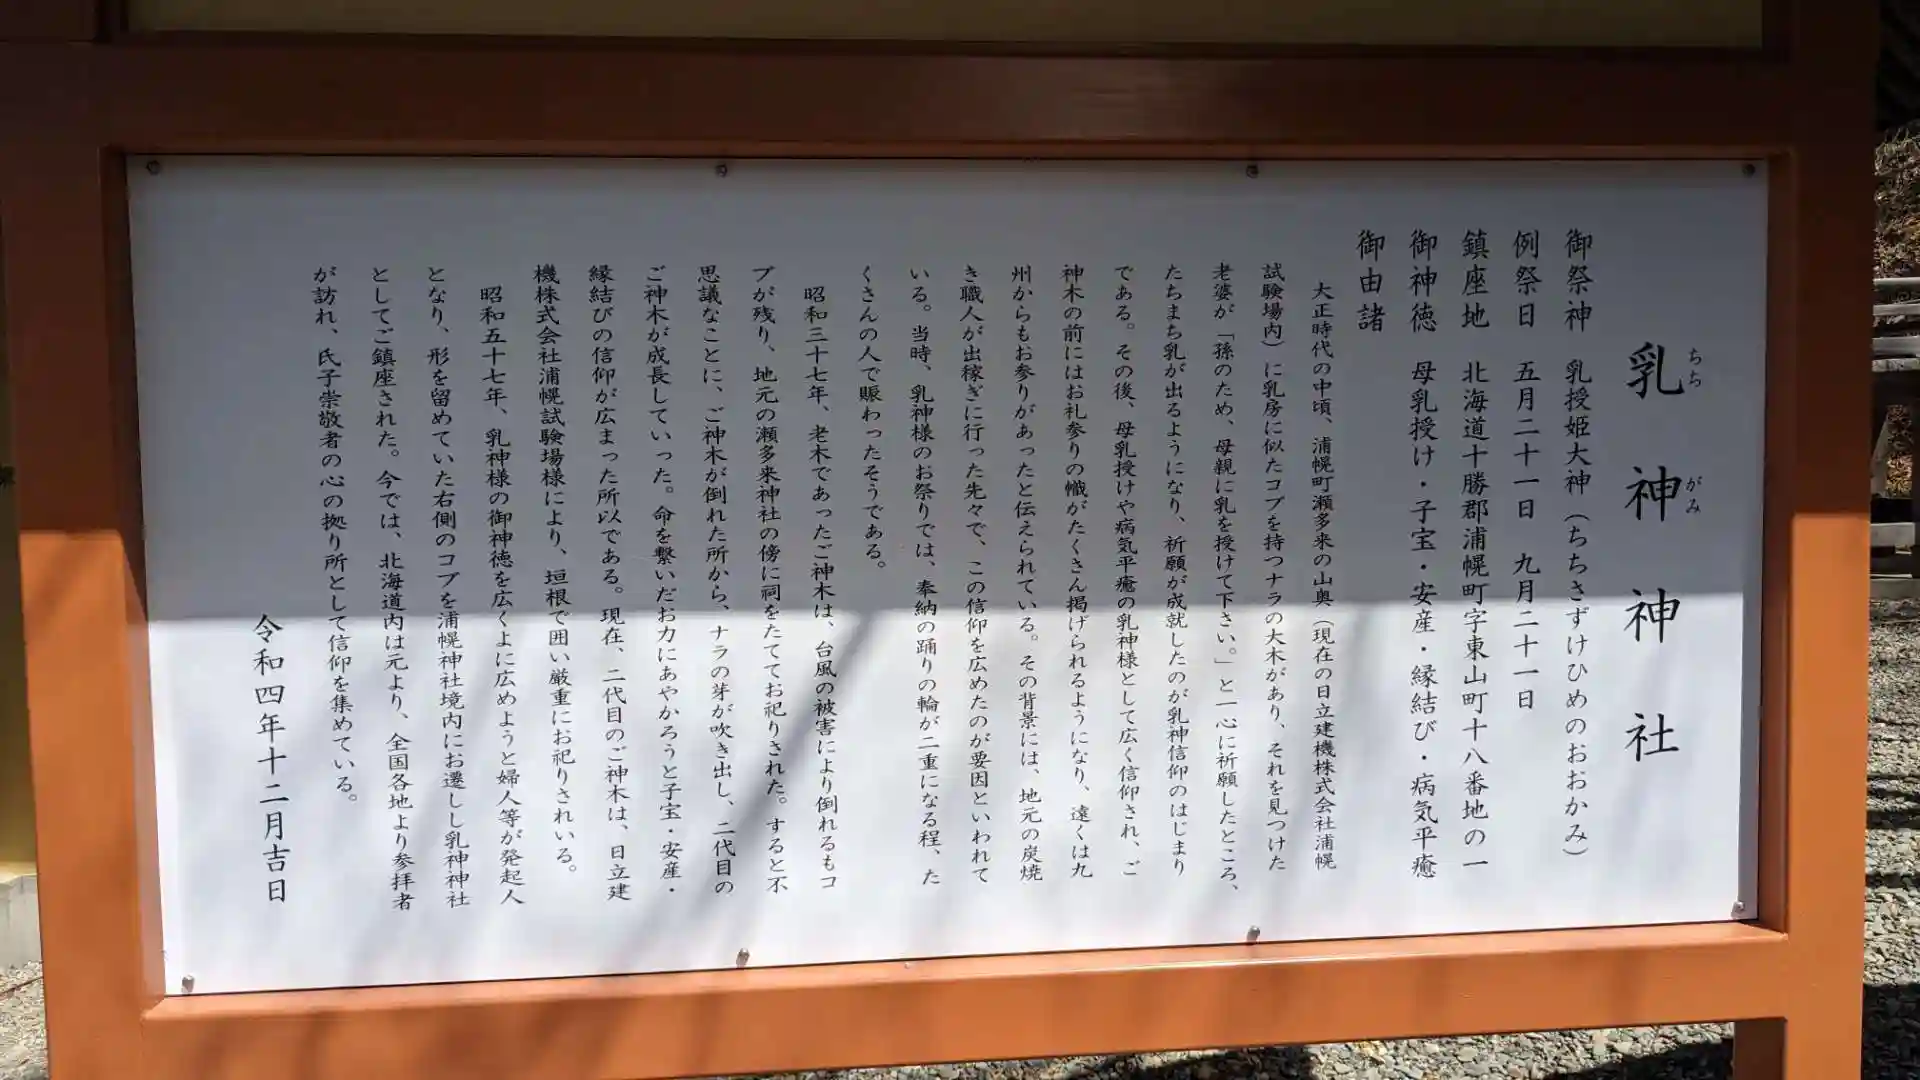 乳神神社
ちち がみ
御祭神 乳授姫大神(ちちさずけひめのおおかみ)
例祭日 五月二十一日 九月二十一日
鎮座地 北海道十勝郡浦幌町字東山町十八番地の一
御神徳 母乳授け・子宝・安産・縁結び・病気平癒
御由諸
大正時代の中頃、浦幌町瀬多来の山奥(現在の日立建機株式会社浦幌
試験場内)に乳房に似たコブを持つナラの大木があり、それを見つけた
老婆が「孫のため、母親に乳を授けて下さい。」と一心に祈願したところ、
たちまち乳が出るようになり、祈願が成就したのが乳神信仰のはじまり
である。その後、母乳授けや病気平癒の乳神様として広く信仰され、ご
神木の前にはお礼参りの幟がたくさん掲げられるようになり、遠くは九
州からもお参りがあったと伝えられている。その背景には、地元の炭焼
き職人が出稼ぎに行った先々で、この信仰を広めたのが要因といわれて
いる。当時、乳神様のお祭りでは、奉納の踊りの輪が二重になる程、た
くさんの人で賑わったそうである。
昭和三十七年、老木であったご神木は、台風の被害により倒れるもコ
ブが残り、地元の瀬多来神社の傍に祠をたててお祀りされた。すると不
思議なことに、ご神木が倒れた所から、ナラの芽が吹き出し、二代目の
ご神木が成長していった。命を繋いだお力にあやかろうと子宝・安産・
縁結びの信仰が広まった所以である。現在、二代目のご神木は、日立建
機株式会社浦幌試験場様により、垣根で囲い厳重にお祀りされいる。
昭和五十七年、乳神様の御神徳を広くよに広めようと婦人等が発起人
となり、形を留めていた右側のコブを浦幌神社境内にお遷しし乳神神社
としてご鎮座された。今では、北海道内は元より、全国各地より参拝者
が訪れ、氏子崇敬者の心の拠り所として信仰を集めている。
令和四年十二月吉日